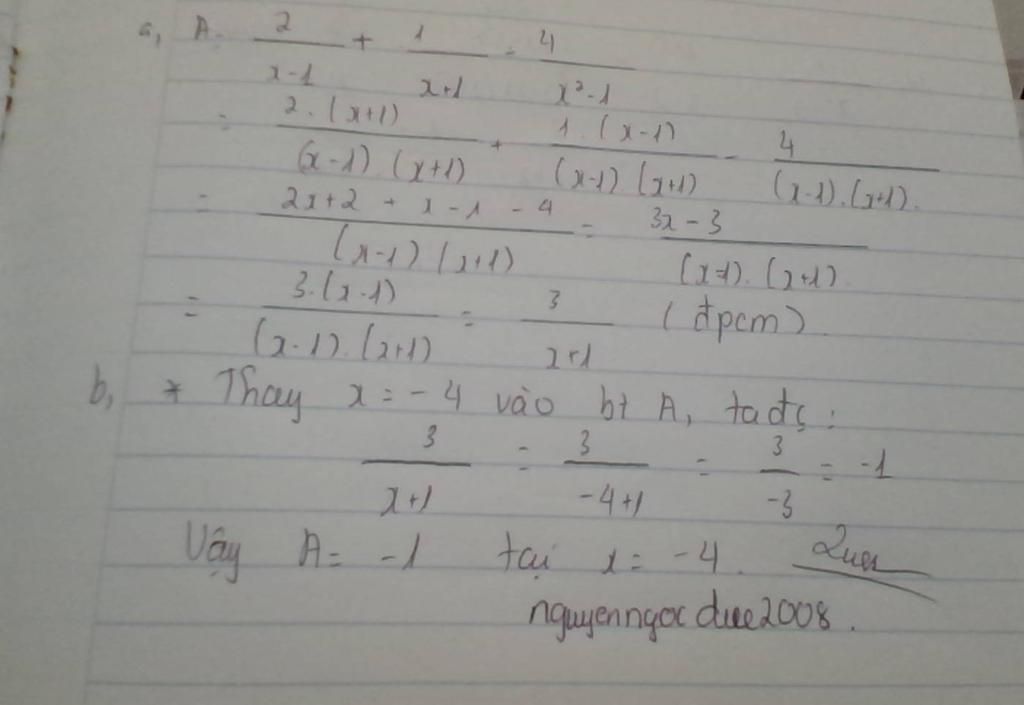 a, A = 2/(x-1) + 1/(x+1) - 4/(x²-1)
= 2.(x+1)/((x-1).(x+1)) + 1.(x-1)/((x-1)(x+1)) - 4/((x-1).(x+1)).
= (2x+2+x-1-4)/((x-1)(x+1)) = (3x-3)/((x-1).(x+1))
= 3.(x-1)/((x-1).(x+1)) = 3/(x+1) (đpcm)
b, * Thay x = -4 vào bt A, ta đc:
3/(x+1) = 3/(-4+1) = 3/(-3) = -1
Vậy A = -1 tại x = -4.
nguyenngocduc2008.